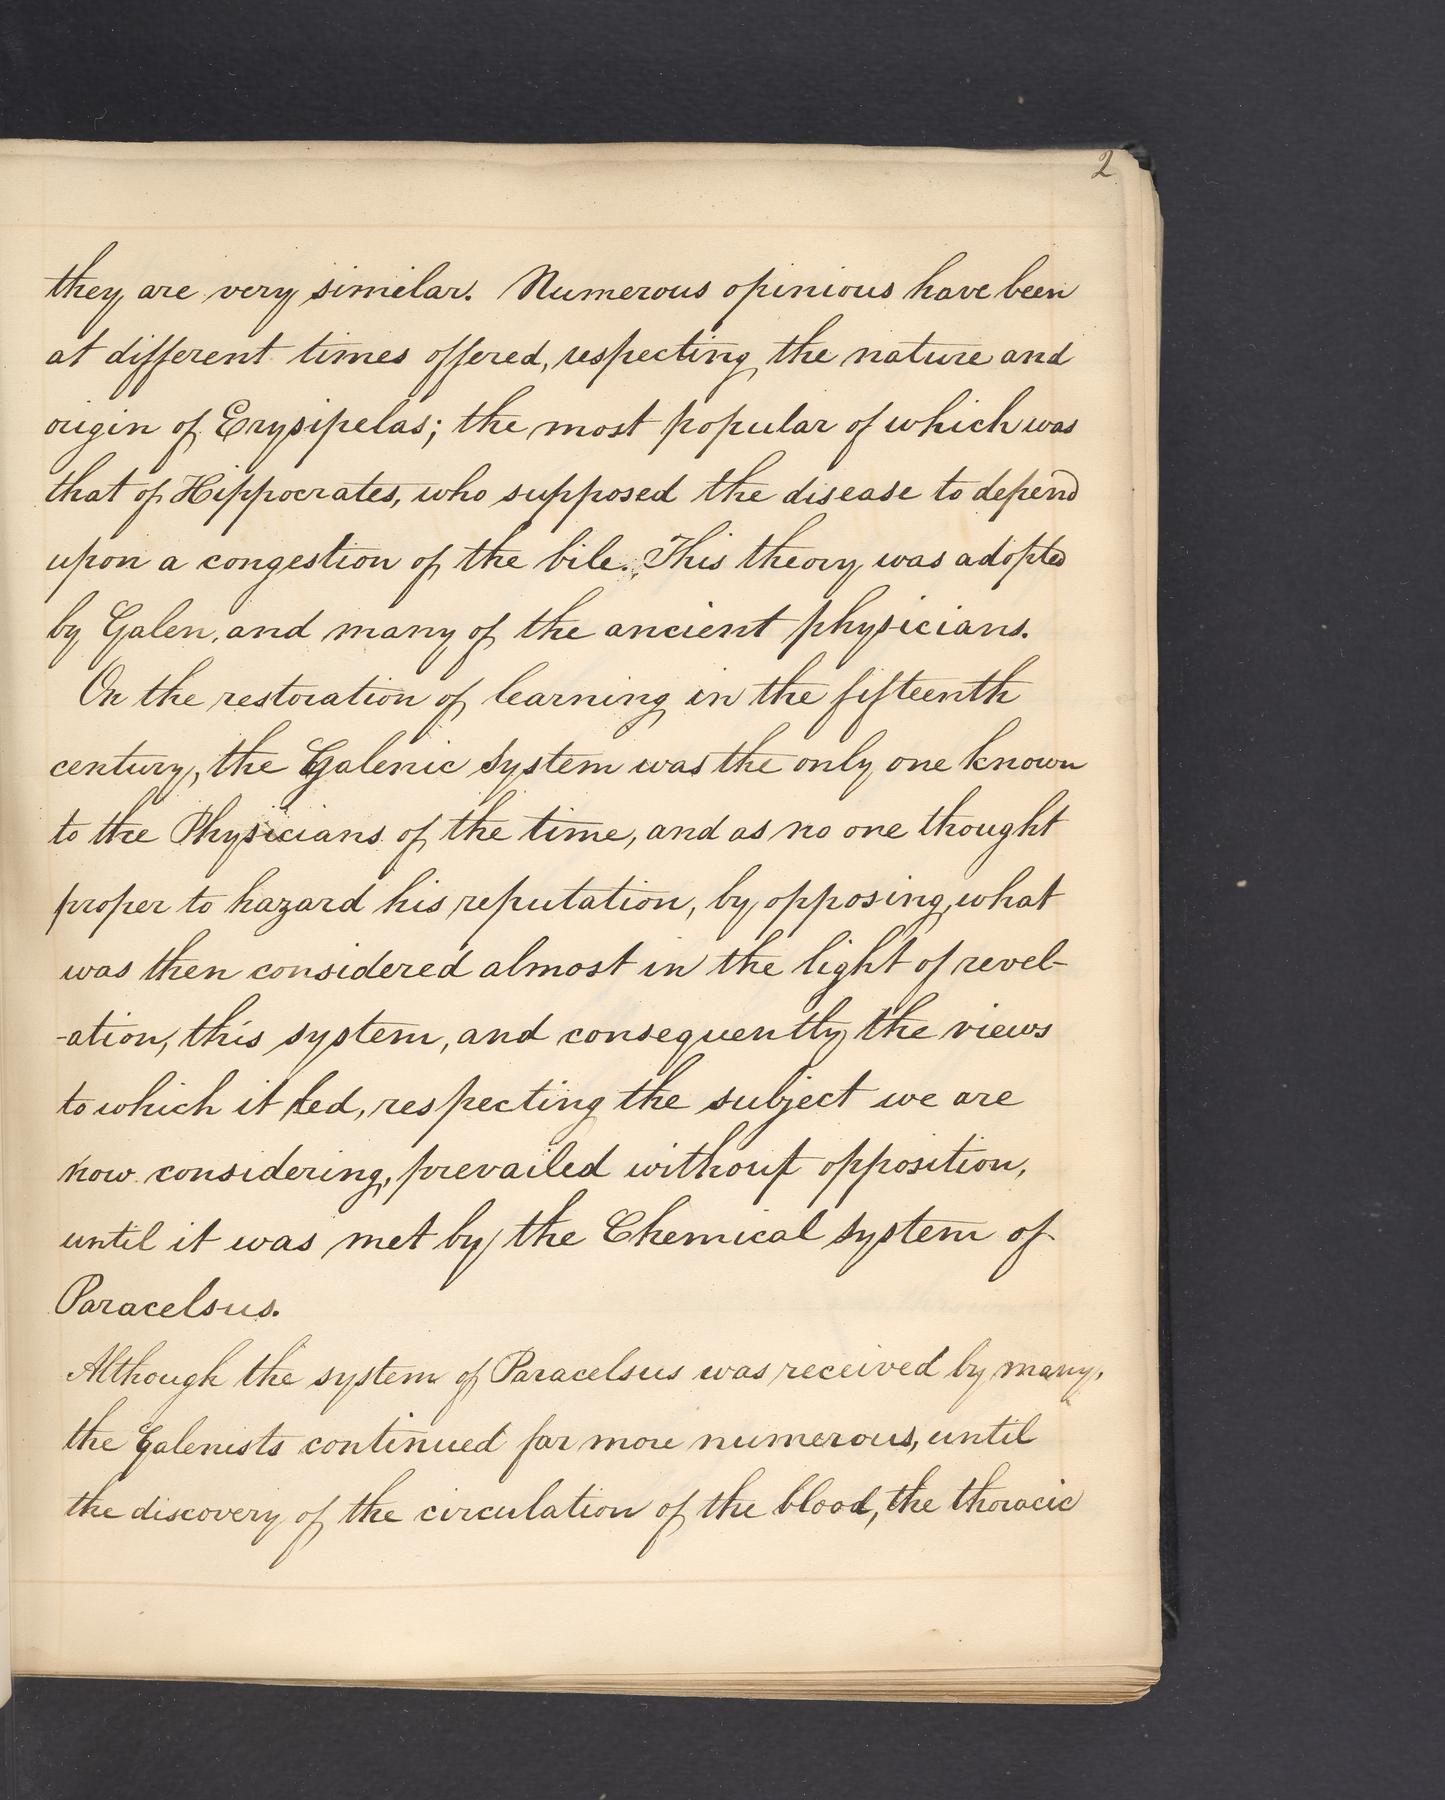 2
they are very similar. Numerous opinions have been
at different times offered, respecting the nature and
origin of Erysipelas; the most popular of which was
that of Hippocrates, who supposed the disease to depend
upon a congestion of the bile. This theory was adopted
by Galen, and many of the ancient physicians.
On the restoration of learning in the fifteenth
century, the Galenic system was the only one known
to the Physicians of the time, and as no one thought
proper to hazard his reputation, by opposing, what
was then considered almost in the light of revel-
-ation, this system, and consequently the views
to which it led, respecting the subject we are
now considering, prevailed without opposition,
until it was met by the Chemical system of
Paracelsus.
Although the system of Paracelsus was received by many,
the Galenists continued far more numerous, until
the discovery of the circulation of the blood, the thoracic